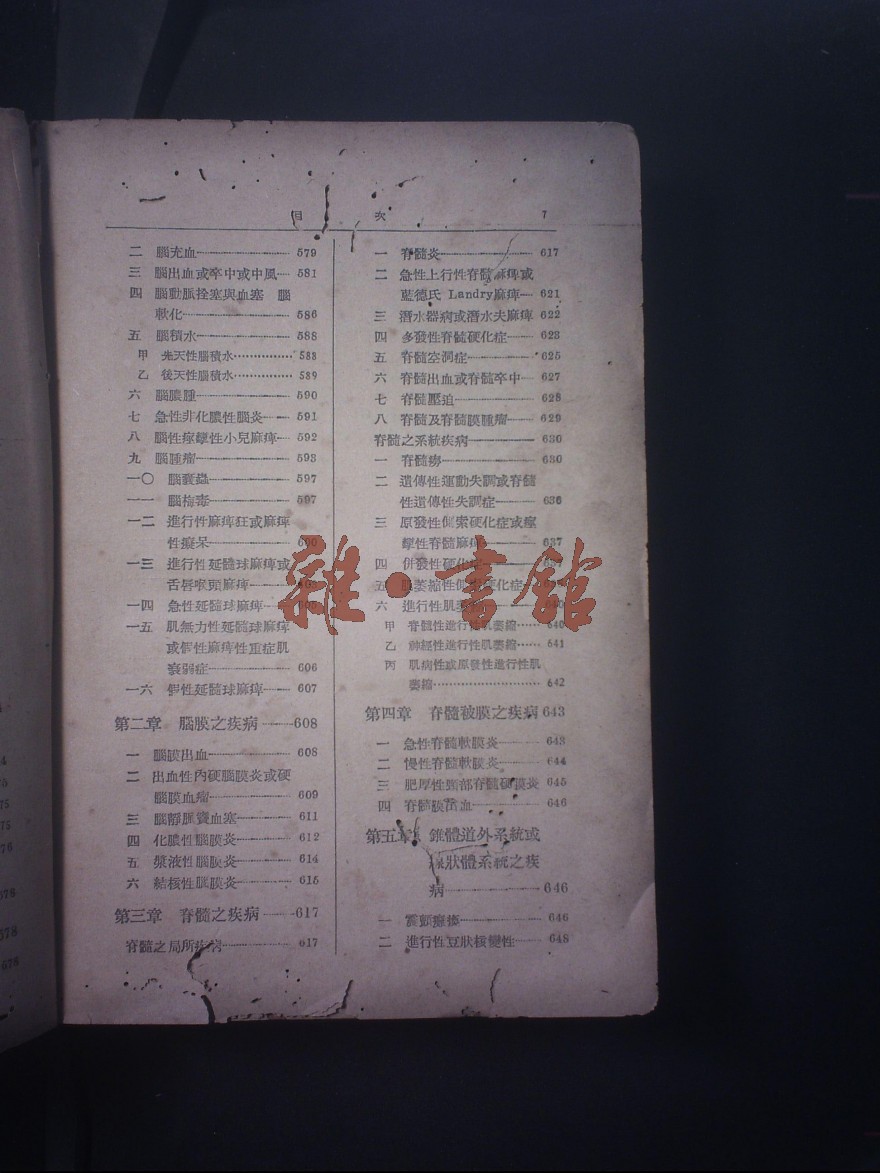 目 次 7
二 腦充血 579
三 腦出血或卒中或中風 581
四 腦動脈栓塞與血塞 腦
軟化 586
五 腦積水 588
甲 先天性腦積水 588
乙 後天性腦積水 589
六 腦膿腫 590
七 急性非化膿性腦炎 591
八 腦性痙攣性小兒麻痺 592
九 腦腫瘤 593
一〇 腦囊蟲 597
一一 腦梅毒 597
一二 進行性麻痺狂或麻痺
性癡呆
一三 進行性延髓球麻痺或
舌唇喉頭麻痺
一四 急性延髓球麻痺
一五 肌無力性延髓球麻痺
或假性麻痺性重症肌
衰弱症 606
一六 假性延髓球麻痺 607
第二章 腦膜之疾病 608
一 腦膜出血 608
二 出血性內硬腦膜炎或硬
腦膜血瘤 609
三 腦靜脈竇血塞 611
四 化膿性腦膜炎 612
五 漿液性腦膜炎 614
六 結核性腦膜炎 615
第三章 脊髓之疾病 617
脊髓之局所疾病 617
一 脊髓炎 617
二 急性上行性脊髓麻痺或
藍德氏 Landry麻痺 621
三 潛水器病或潛水夫麻痺 622
四 多發性脊髓硬化症 623
五 脊髓空洞症 625
六 脊髓出血或脊髓卒中 627
七 脊髓壓迫 628
八 脊髓及脊髓膜腫瘤 629
脊髓之系統疾病 630
一 脊髓癆 630
二 遺傳性運動失調或脊髓
性遺傳性失調症 636
三 原發性側索硬化症或痙
攣性脊髓麻痺 637
四 併發性硬化症
五 肌萎縮性側索硬化症
六 進行性肌萎
甲 脊髓性進行性肌萎縮 640
乙 神經性進行性肌萎縮 641
丙 肌病性或原發性進行性肌
萎縮 642
第四章 脊髓被膜之疾病 643
一 急性脊髓軟膜炎 643
二 慢性脊髓軟膜炎 644
三 肥厚性頸部脊髓硬膜炎 645
四 脊髓膜出血 646
第五章 錐體道外系統或
紋狀體系統之疾
病 646
一 震顫癱瘓 646
二 進行性豆狀核變性 648
雜·書館